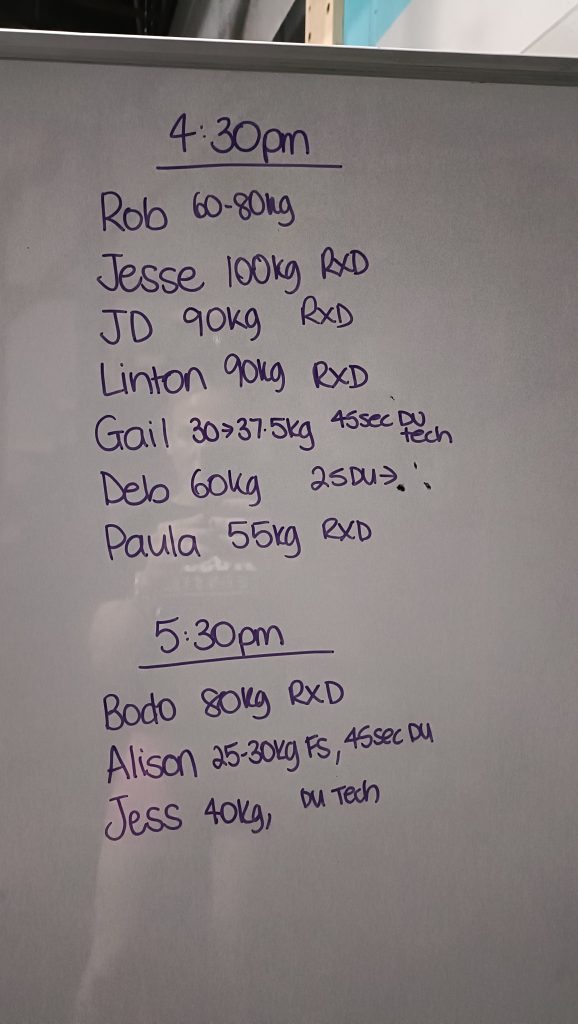 4:30pm
Rob 60-80kg
Jesse 100kg RXD
JD 90kg RXD
Linton 90kg RXD
Gail 30→37.5kg 45sec DU tech
Deb 60kg 25DU→
Paula 55kg RXD
5:30pm
Bodo 80kg RXD
Alison 25-30kg FS, 45sec DU
Jess 40kg, DU Tech